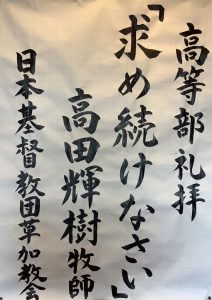 高等部礼拝
「求め続けなさい」
高田輝樹牧師
日本基督教団草加教会